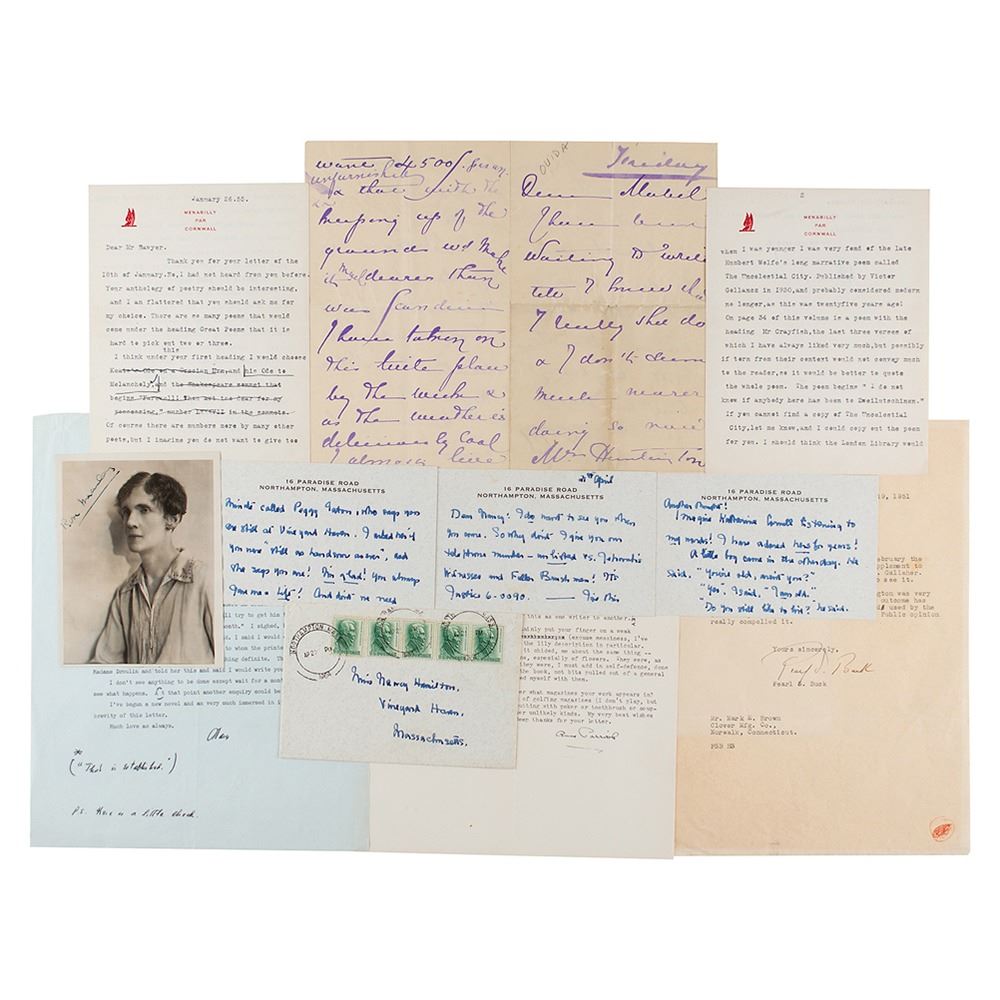 January 26.55.
MENABILLY
PAR
CORNWALL
Dear Mr Sawyer.
Thank you for your letter of the
18th of January. No, I had not heard from you before.
Your anthology of poetry should be interesting,
and I am flattered that you should ask me for
my choice. There are so many poems that would
come under the heading Great Poems that it is
hard to pick out two or three.
this
I think under your first heading I would choose
Keats's Ode on a Grecian Urn, and his Ode to
Melancholy, and the Shakespeare sonnet that
begins "Farewell! thou art too dear for my
possessing,"
Of course there are numbers more by many other
poets, but I imagine you do not want to give too
want £4500
unfurnished
& that with the
keeping up of the
grounds wd make
it dearer than
was
I have taken on
this little place
by the week &
as the weather is
deliciously cool
I almost live
OUIDA
Dear Mabel
I have been
waiting to write
I really
& I don't seem
much nearer
doing so
Mrs Huntington
2
MENABILLY
PAR
CORNWALL
when I was younger I was very fond of the late
Humbert Wolfe's long narrative poem called
The Uncelestial City. Published by Victor
Gollancz in 1930, and probably considered modern
no longer, as this was twentyfive years ago!
On page 34 of this volume is a poem with the
heading Mr Crayfish, the last three verses of
which I have always liked very much, but possibly
if torn from their context would not convey much
to the reader, so it would be better to quote
the whole poem. The poem begins "I do not
know if anybody here has been to
If you cannot find a copy of The Uncelestial
City, let me know, and I could copy out the poem
for you. I should think the London Library would
16 PARADISE ROAD
NORTHAMPTON, MASSACHUSETTS
friends called Peggy who says you
are still at Vineyard Haven. I asked her if
you were "still as handsome as ever", and
she says you are! I'm glad! You always
gave me a Lift! And don't we need
21st April
16 PARADISE ROAD
NORTHAMPTON, MASSACHUSETTS
Dear Nancy! I do want to see you when
you come. So why don't I give you our
telephone number — unlisted vs. Jehovah's
Witnesses and Fuller Brush men! It's
Justice 6-0090. — I'm this
16 PARADISE ROAD
NORTHAMPTON, MASSACHUSETTS
Another thought!
I imagine Katharine Cornell listening to
my words! I have adored her for years!
A little boy came in the other day. He
said, "You're old, aren't you?"
"Yes," I said, "I am old."
"Do you still like to live? he said.
19, 1951
February the
. Gallaher.
to see it.
ngton was very
outcome has
used by the
Public opinion
really compelled it.
Yours sincerely,
Pearl S. Buck
Pearl S. Buck
Mr. Mark M. Brown
Clover Mfg. Co.,
Norwalk, Connecticut.
PSB
ll try to get his
." I sighed,
said I would
to whom the printe
king definite. Th
Madame Droulin and told her this and said I would write you
I don't see anything to be done except wait for a
see what happens. At that point another enquiry could be
I've begun a new novel and am very much immersed in i
brevity of this letter.
Much love as always.
("This is established.")
P.S. Here is a little check.
NORTHAMPTON
APR 27 PM
1964
Miss Nancy Hamilton,
Vineyard Haven,
Massachusetts.
this as one writer to another.
ainly put your finger on a weak
(excuse messiness, I've
the lily description in particular.
it chided, me about the same thing --
e, especially of flowers. They were, as
they were, I must add in self-defense, done
the book, not bits pulled out of a general
ed myself with them.
er what magazines your work appears in?
of golfing magazines (I don't play, but
uiting with poker or toothbrush or soup-
er unlikely kinds. My very best wishes
deep thanks for your letter.
Anne Parrish